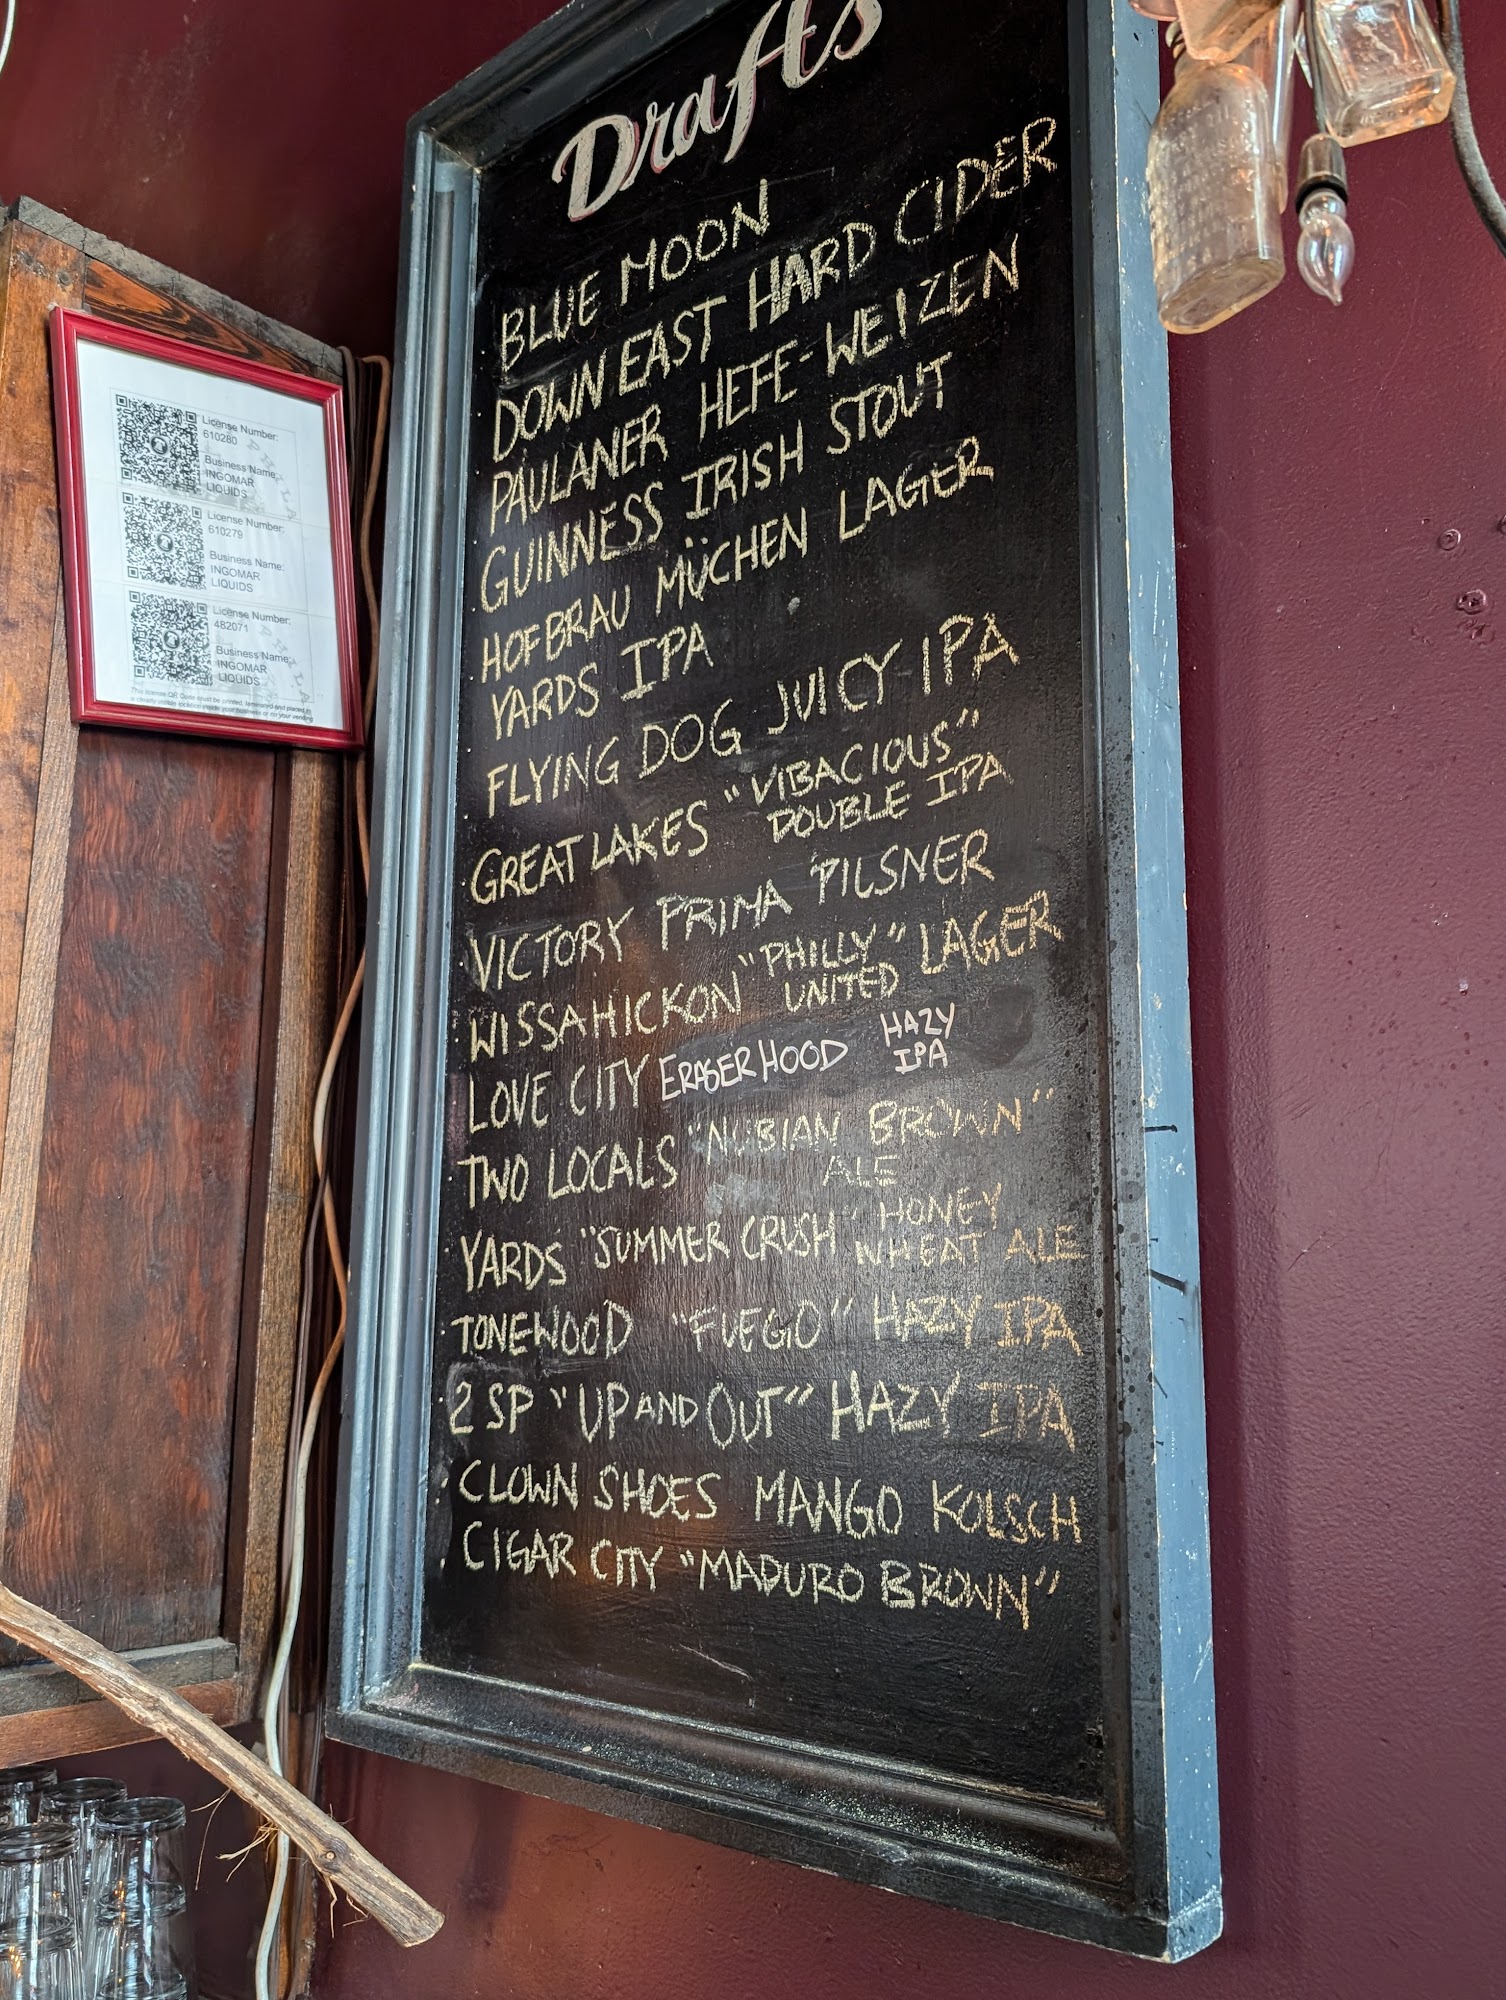 Drafts
BLUE MOON
DOWNEAST HARD CIDER
PAULANER HEFE-WEIZEN
GUINNESS IRISH STOUT
HOFBRAU MÜCHEN LAGER
YARDS IPA
FLYING DOG JUICY IPA
GREAT LAKES "VIBACIOUS"
DOUBLE IPA
VICTORY PRIMA PILSNER
WISSAHICKON "PHILLY" LAGER
UNITED
LOVE CITY ERASERHOOD HAZY
IPA
TWO LOCALS "NUBIAN BROWN"
ALE
YARDS "SUMMER CRUSH" HONEY
WHEAT ALE
TONEWOOD "FUEGO" HAZY IPA
2SP "UP AND OUT" HAZY IPA
CLOWN SHOES MANGO KOLSCH
CIGAR CITY "MADURO BROWN"
License Number:
610280
Business Name:
INGOMAR
LIQUIDS
License Number:
610279
Business Name:
INGOMAR
LIQUIDS
License Number:
482071
Business Name:
INGOMAR
LIQUIDS
This license QR Code must be printed, laminated and placed in
a clearly visible location inside your business or on your vending